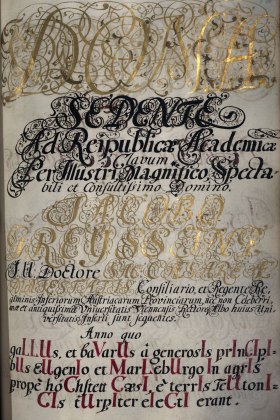 SEDENTE
Ad Reipublicæ Academicæ
Clavum
Per Illustri, Magnifico, Specta-
bili et Consultissimo Domino,
JACOBO
J.U. Doctore
Consiliario, et Regente Re-
giminis Inferiorum Austriacarum Provinciarum, nec non Celeberri-
mæ et antiquissimæ Universitatis Viennensis Rectore, Albo huius Uni-
versitatis Inserti sunt sequentes.
Anno quo
gaLLUs, et baVarUs à generosIs prInCIpI-
bUs eUgenIo et MarLebUrgo In agrIs
propè hoChstett CæsI, è terrIs TeUtonI-
CIs tUrpIter eIeCtI erant.